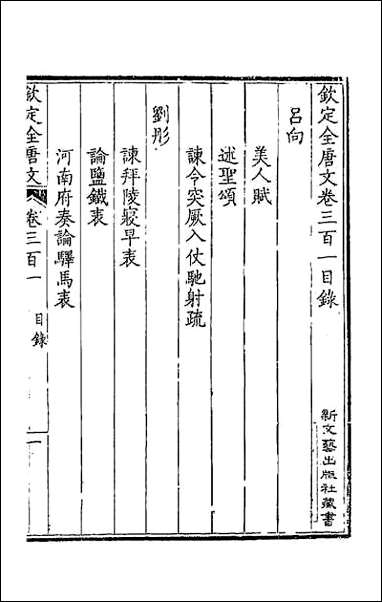 欽定全唐文卷三百一目錄
呂向
美人賦
述聖頌
諫令突厥入仗馳射疏
劉彤
諫拜陵寢早表
論鹽鐵表
河南府奏論驛馬表
欽定全唐文 卷三百一 目錄 一
新文藝出版社藏書